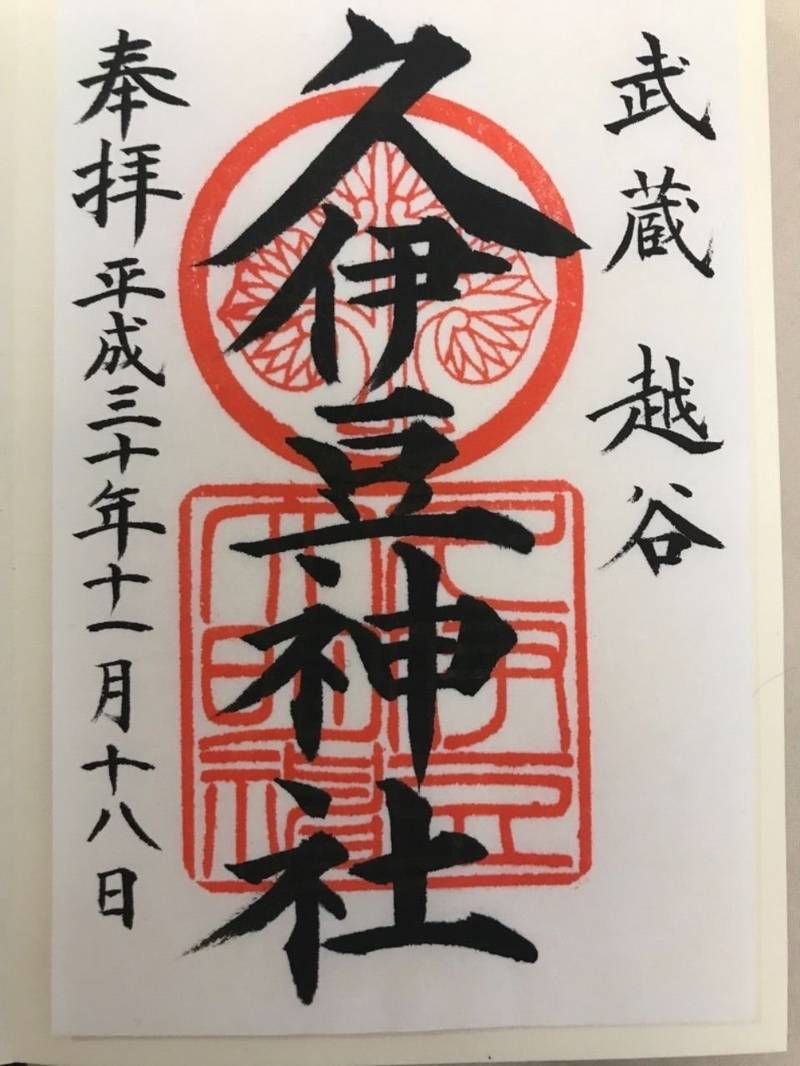 武蔵 越谷
久伊豆神社
奉拝 平成三十年十一月十八日